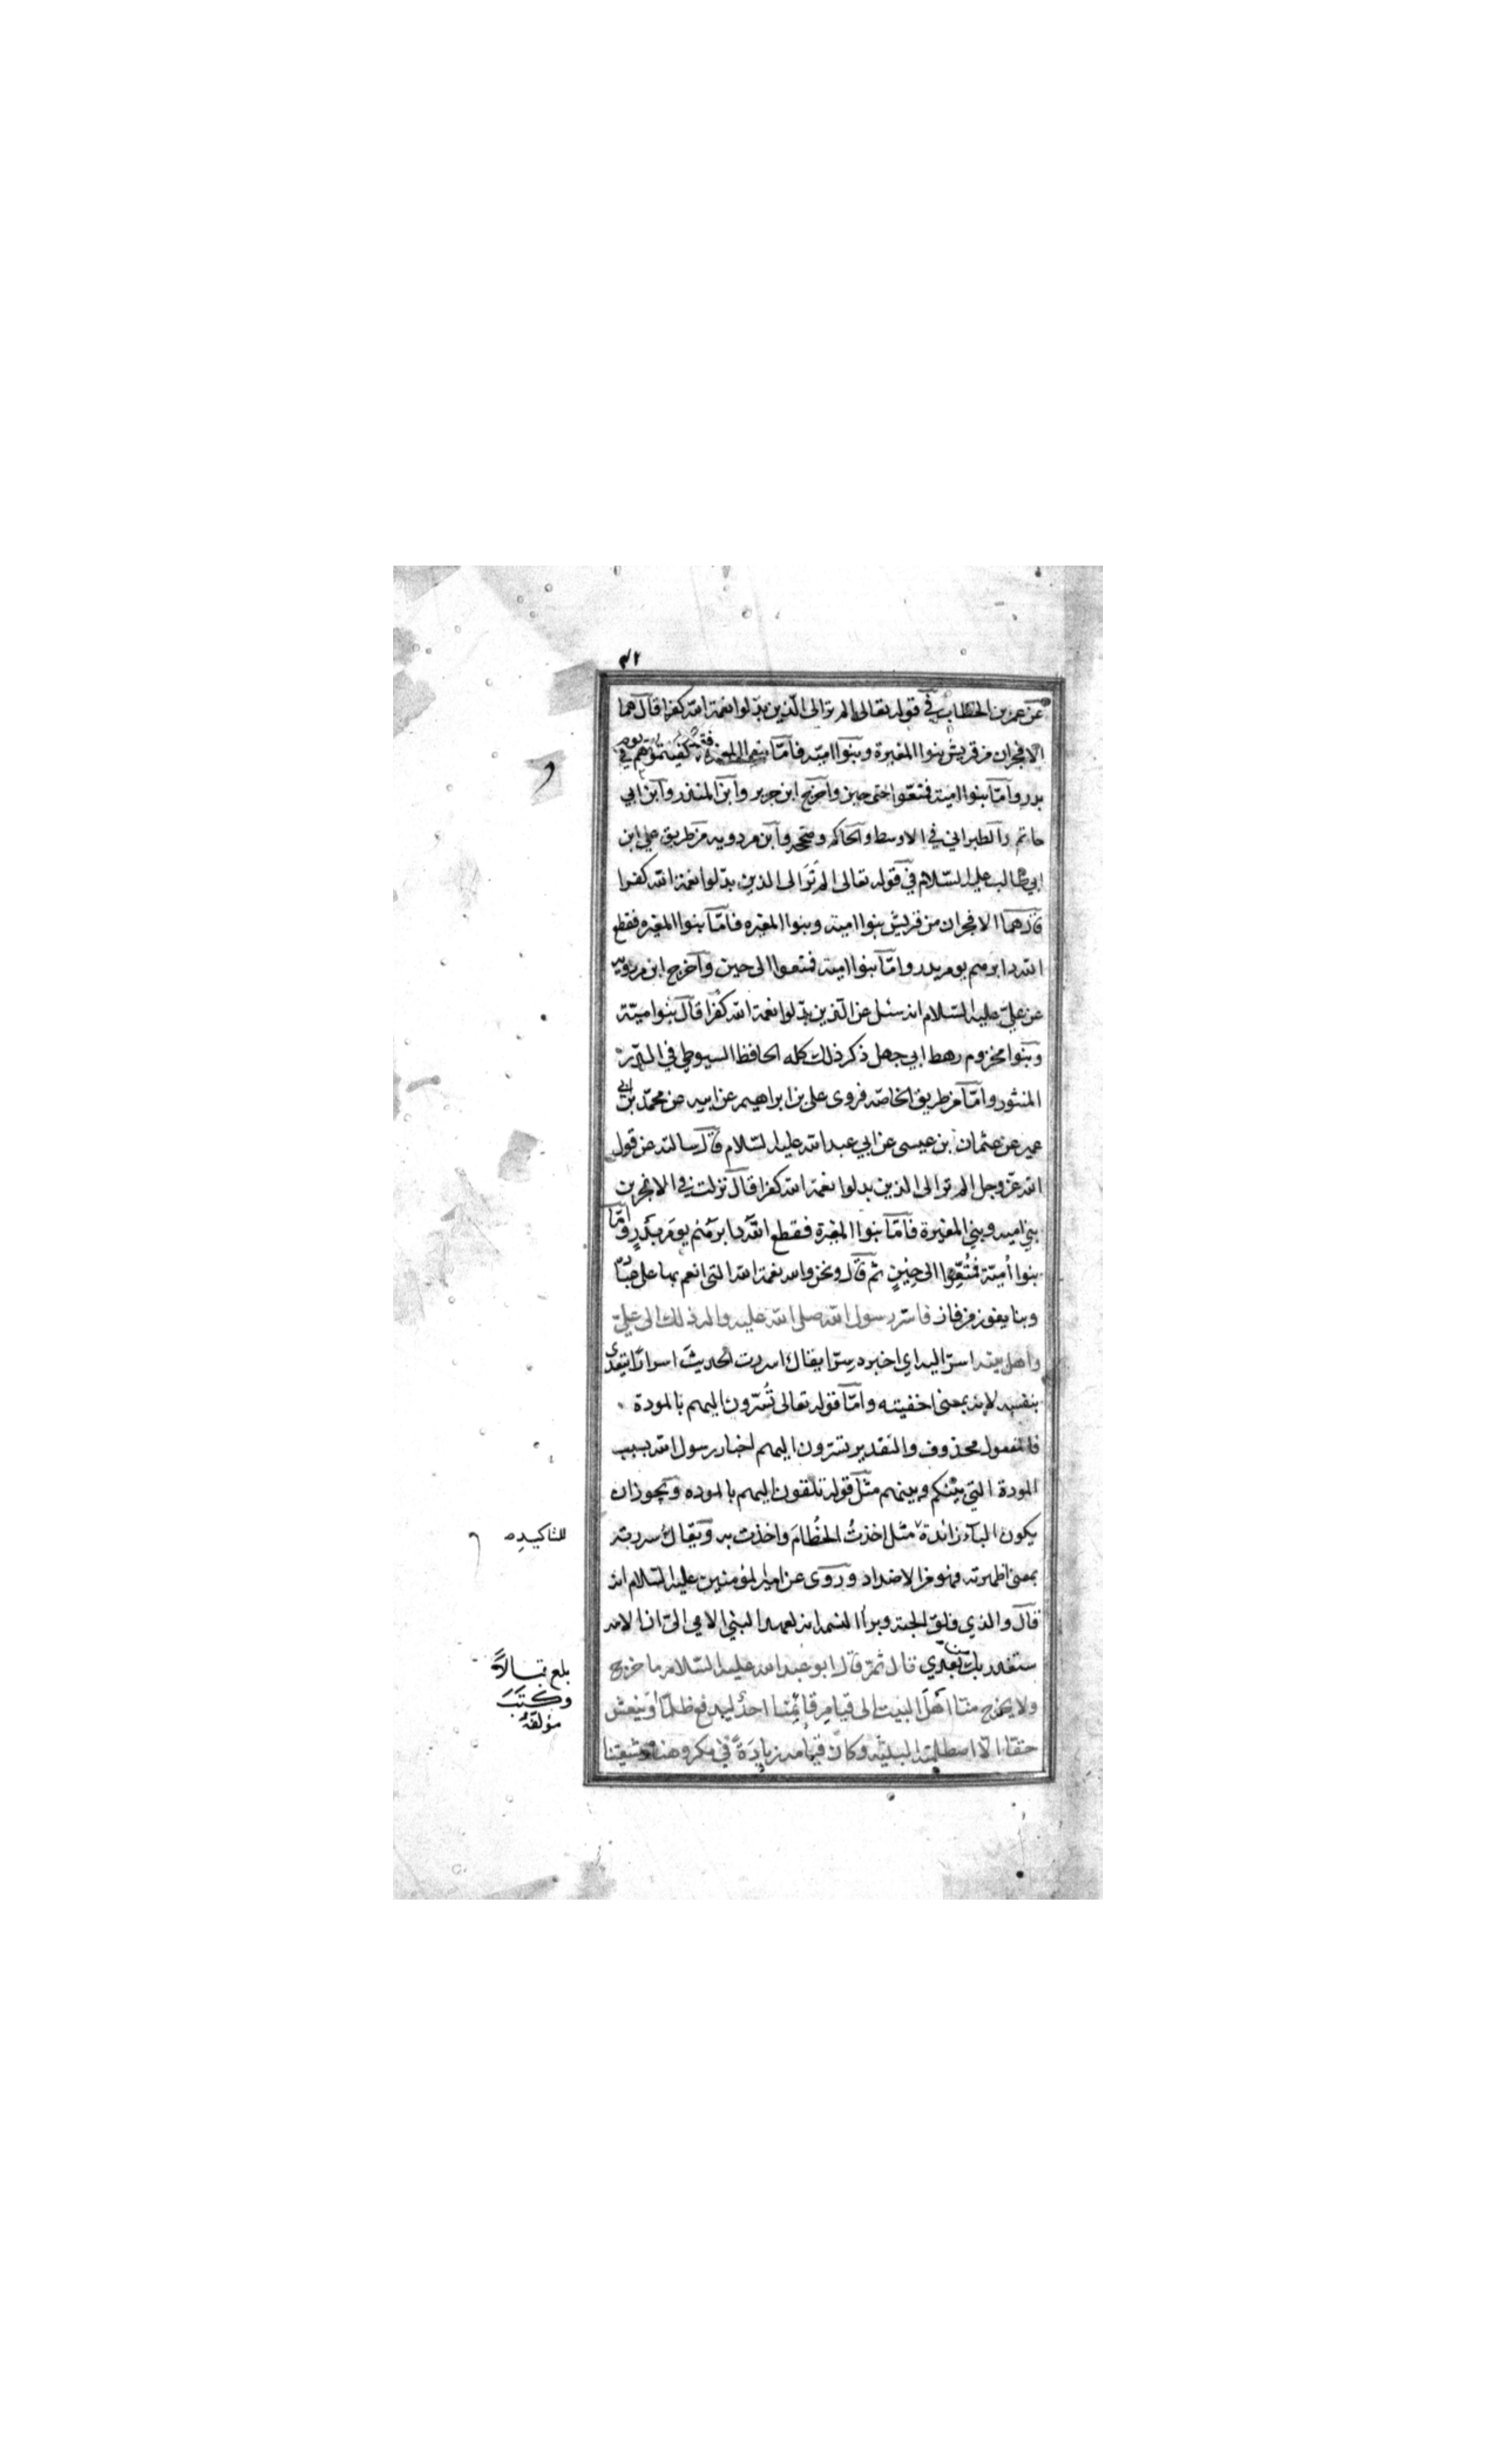 ٤٢
عن عمر بن الخطاب في قوله تعالى الم تر الى الّذين بدّلوا نعمة الله كفرا قال هما
الافجران من قريش بنوا المغيرة وبنوا اميّه فامّا بنوا المغيرة فكفيتموهم يوم
بدر وامّا بنوا امية فمتّعوا حتى حين واخرج ابن جرير وابن المنذر وابن ابي
حاتم والطبراني في الاوسط والحاكم وصحّحه وابن مردويه من طريق علي ابن
ابي طالب عليه السّلام في قوله تعالى الم تَرَ الى الذين بدّلوا نعمة الله كفرا
قال هما الافجران من قريش بنوا امية وبنوا المغيره فامّا بنوا المغيره فقطع
الله دابرهم يوم بدر وامّا بنوا امية فمتعوا الى حين واخرج ابن مردويه
عن عليّ عليه السّلام انه سئل عن الّذين بدّلوا نعمة الله كفرا قال بنوا ميّة
وبنوا مخزوم رهط ابي جهل ذكر ذلك كله الحافظ السيوطي في الدّر
المنثور وامّا من طريق الخاصّه فروى علي بن ابراهيم عن ابيه عن محمّد بن ابي
عمير عن عثمان بن عيسى عن ابي عبد الله عليه السّلام قال سالته عن قول
الله عزّ وجل الم تر الى الذين بدلوا نعمة الله كفرا قال نزلت في الافجرين
بني اميه وبني المغيرة فامّا بنوا المغيرة فقطع الله دابرهُم يوم بَدْرٍ وامّا
بنوا اُميّة فمُتّعُوا الى حِينٍ ثم قال ونحن والله نعمة الله التى انعم بها على عبادهٖ
وبنا يفوز من فاز فاسرّ رسول الله صلى الله عليه واله ذلك الى عليّ
واهل بيته اسرّ اليه اي اخبره سِرّا يقال اسررت الحديثَ اسرارًا يتعدّى
بنفسه لانه بمعنى اخفيته وامّا قوله تعالى تُسرّون اليهم بالمودة
فالمفعول محذوف والتقدير تسرّون اليهم اخبار رسول الله بسبب
المودة التي بينكم وبينهم مثل قوله تلقون اليهم بالموده ويجوز ان
يكون الباء زائدة مثل اخذتُ الخُطامَ واخذت به ويقال اسررته
بمعنى اظهرته فهو من الاضداد وروى عن امير المؤمنين عليه السّلام انه
قال والذي فلق الحبة وبرأ النسمة انه لعهد النبي الامي الىّ ان الامه
ستغدر بك بَعْدي قال ثمّ قال ابو عبد الله عليه السّلام ما خرج
ولا يخرج منّا اَهْلَ البيت الى قيام قائِمِنا احدٌ ليدفع ظلمًا او ينعش
حقّا الّا اصطلمته البليّه وكان قيامه زِيادَةً في مكروهنا وشيعتنا
للتاكيد
بلغ قبالاً
وكَتَبَ
مؤلفهُ